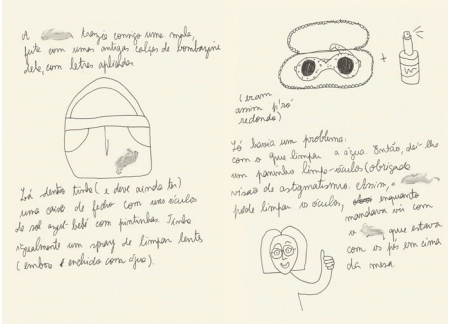 A trazia consigo uma mala,
feita com umas antigas calças de bombazine
dele, com letras aplicadas.
Lá dentro tinha (e deve ainda ter)
uma caixa de fecho com uns óculos
de sol azul-bebé com pintinhas. Tinha
igualmente um spray de limpar lentes
(embora enchido com água).
+
W
(eram
assim p'ró
redondo)
Só havia um problema:
com o que limpar a água. Então, dei-lhe
um paninho limpa-óculos (obrigada
visão de astigmatismo). Assim, a
pôde limpar os óculos, enquanto
mandava vir com
o , que estava
com os pés em cima
da mesa